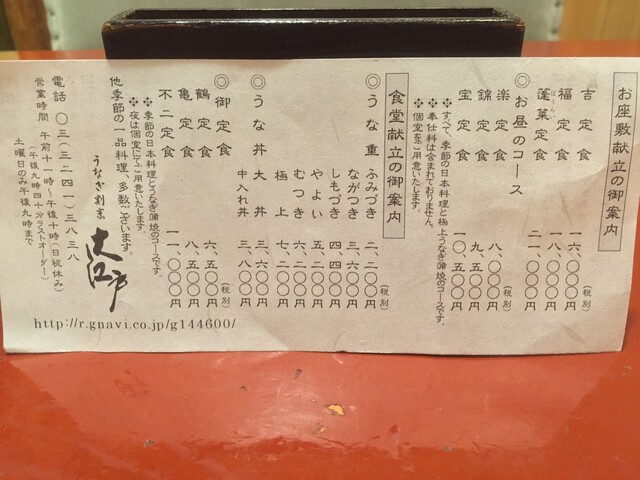 お座敷献立の御案内
吉定食 一六、〇〇〇円
(税別)
福定食 一一、〇〇〇円
蓬莱定食 二一、〇〇〇円
ほーらい
◎お昼のコース
楽定食 八、〇〇〇円
(税別)
錦定食 九、五〇〇円
宝定食 一〇、五〇〇円
※すべて季節の日本料理と極上うなぎ蒲焼のコースです。
※奉仕料は含まれておりません。
※個室をご用意いたします。
食堂献立の御案内
◎うな重 ふみづき 二、二〇〇円
(税別)
ながつき 三、六〇〇円
しもづき 四、四〇〇円
やよい 五、二〇〇円
むつき 六、二〇〇円
極上 七、二〇〇円
◎うな丼 大丼 三、六〇〇円
中入れ丼 三、八〇〇円
◎御定食
鶴定食 六、五〇〇円
(税別)
亀定食 八、五〇〇円
不二定食 一一、〇〇〇円
※季節の日本料理とうなぎ蒲焼のコースです。
※夜は個室にてご用意いたします。
他季節の一品料理、多数ございます。
うなぎ割烹 大江戸
電話 〇三(三二四一)三八三八
営業時間 午前十一時〜午後十時(日祝休み)
(午後九時四十分ラストオーダー)
土曜日のみ午後九時まで
http://r.gnavi.co.jp/g144600/